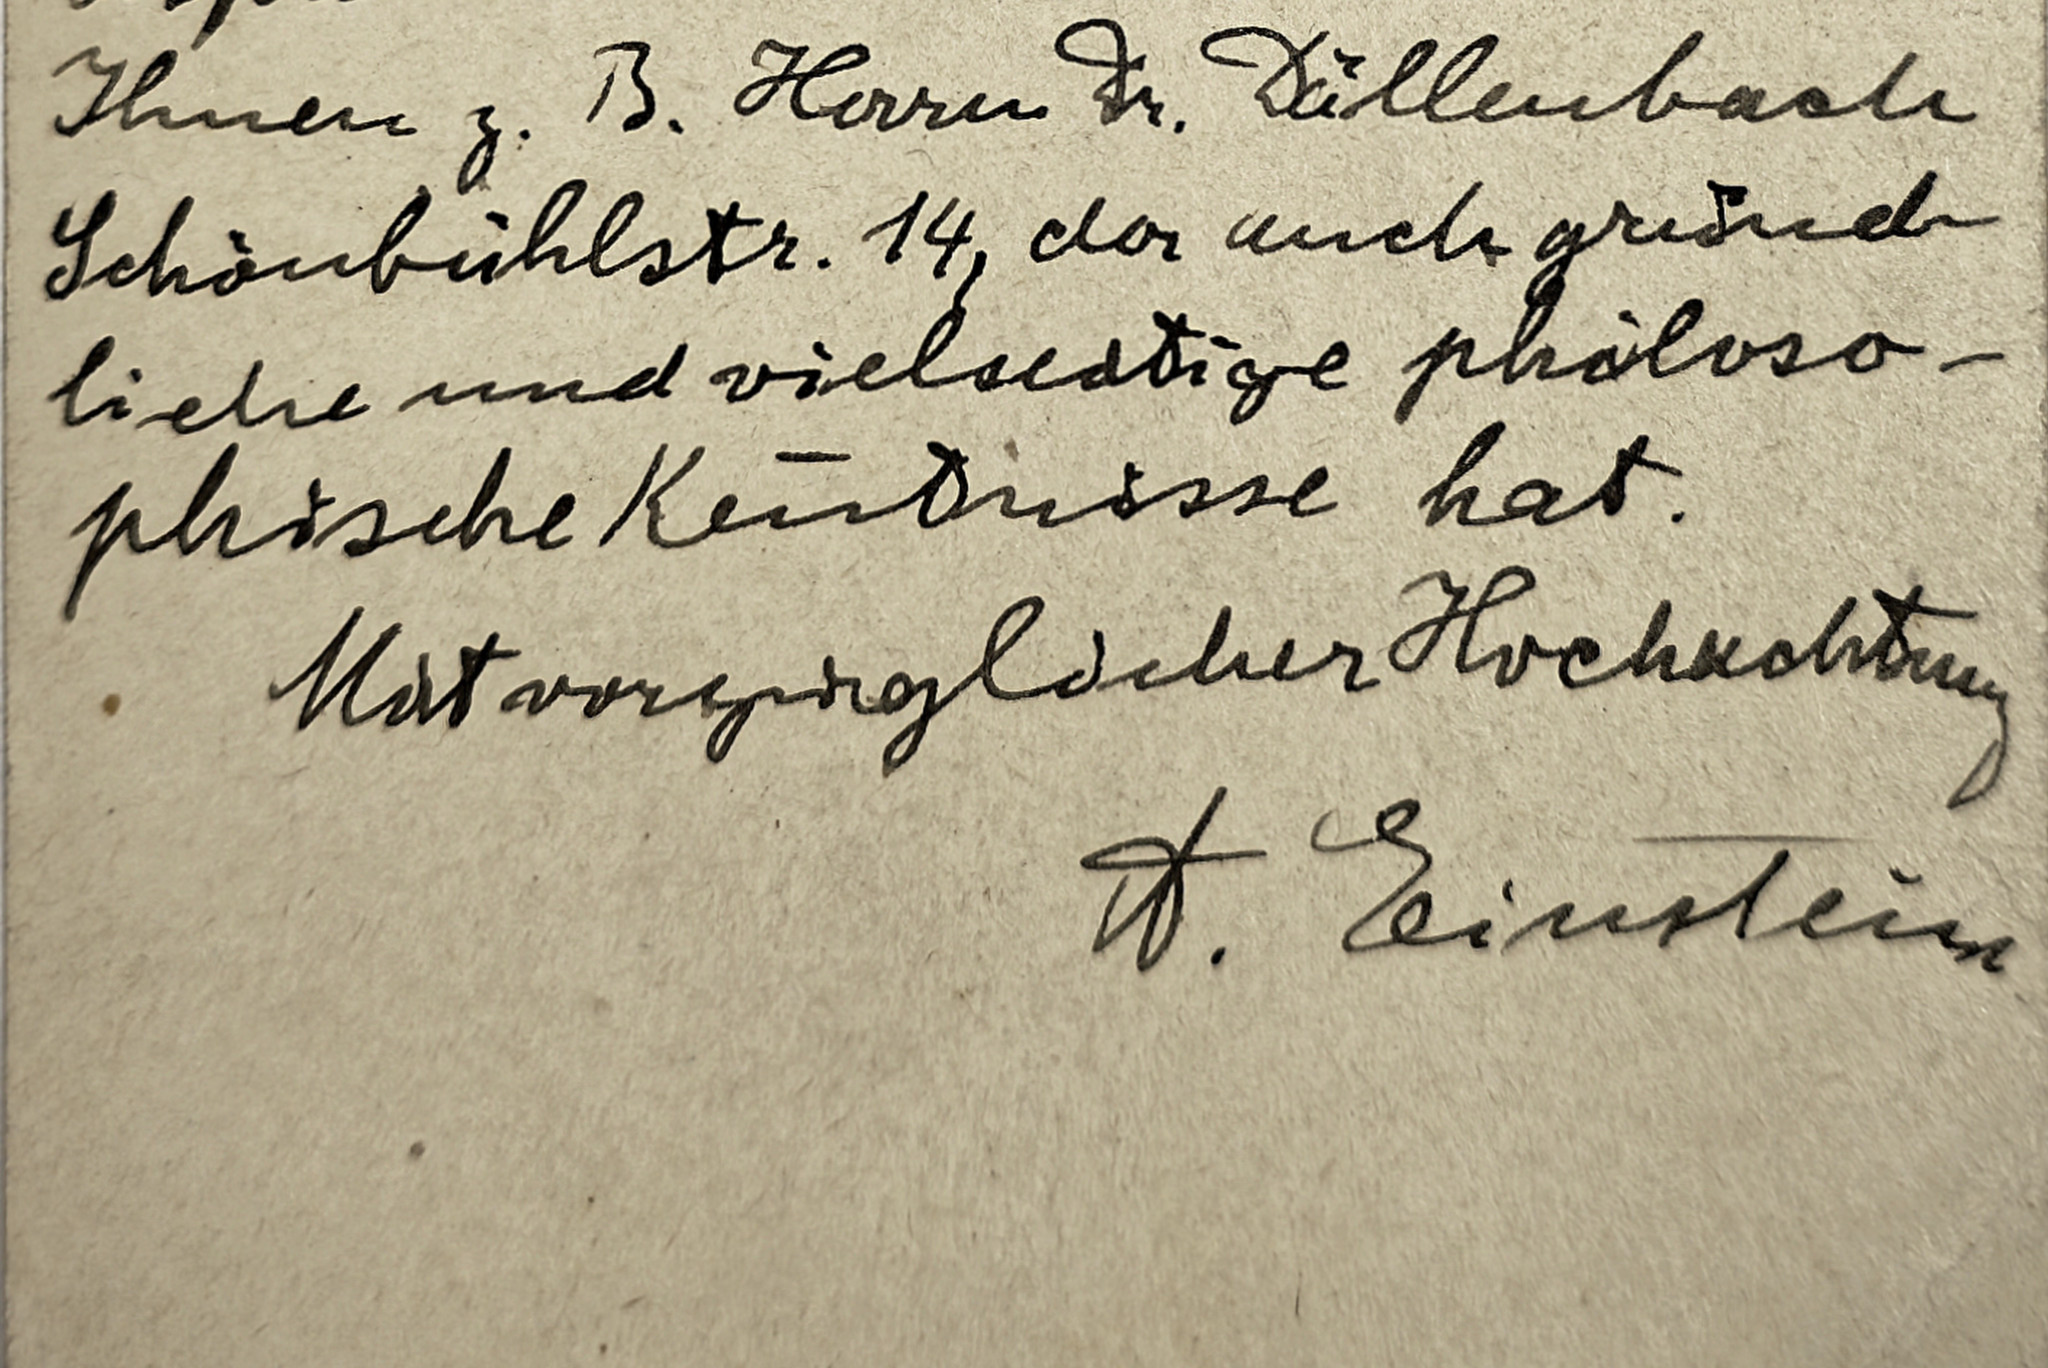 Ihnen z. B. Herrn Dr. Dällenbach
Schönbühlstr. 14, der auch gründ-
liche und vielseitige philoso-
phische Kenn̅tnisse hat.
Mit vorzüglicher Hochachtung
A. Einstein